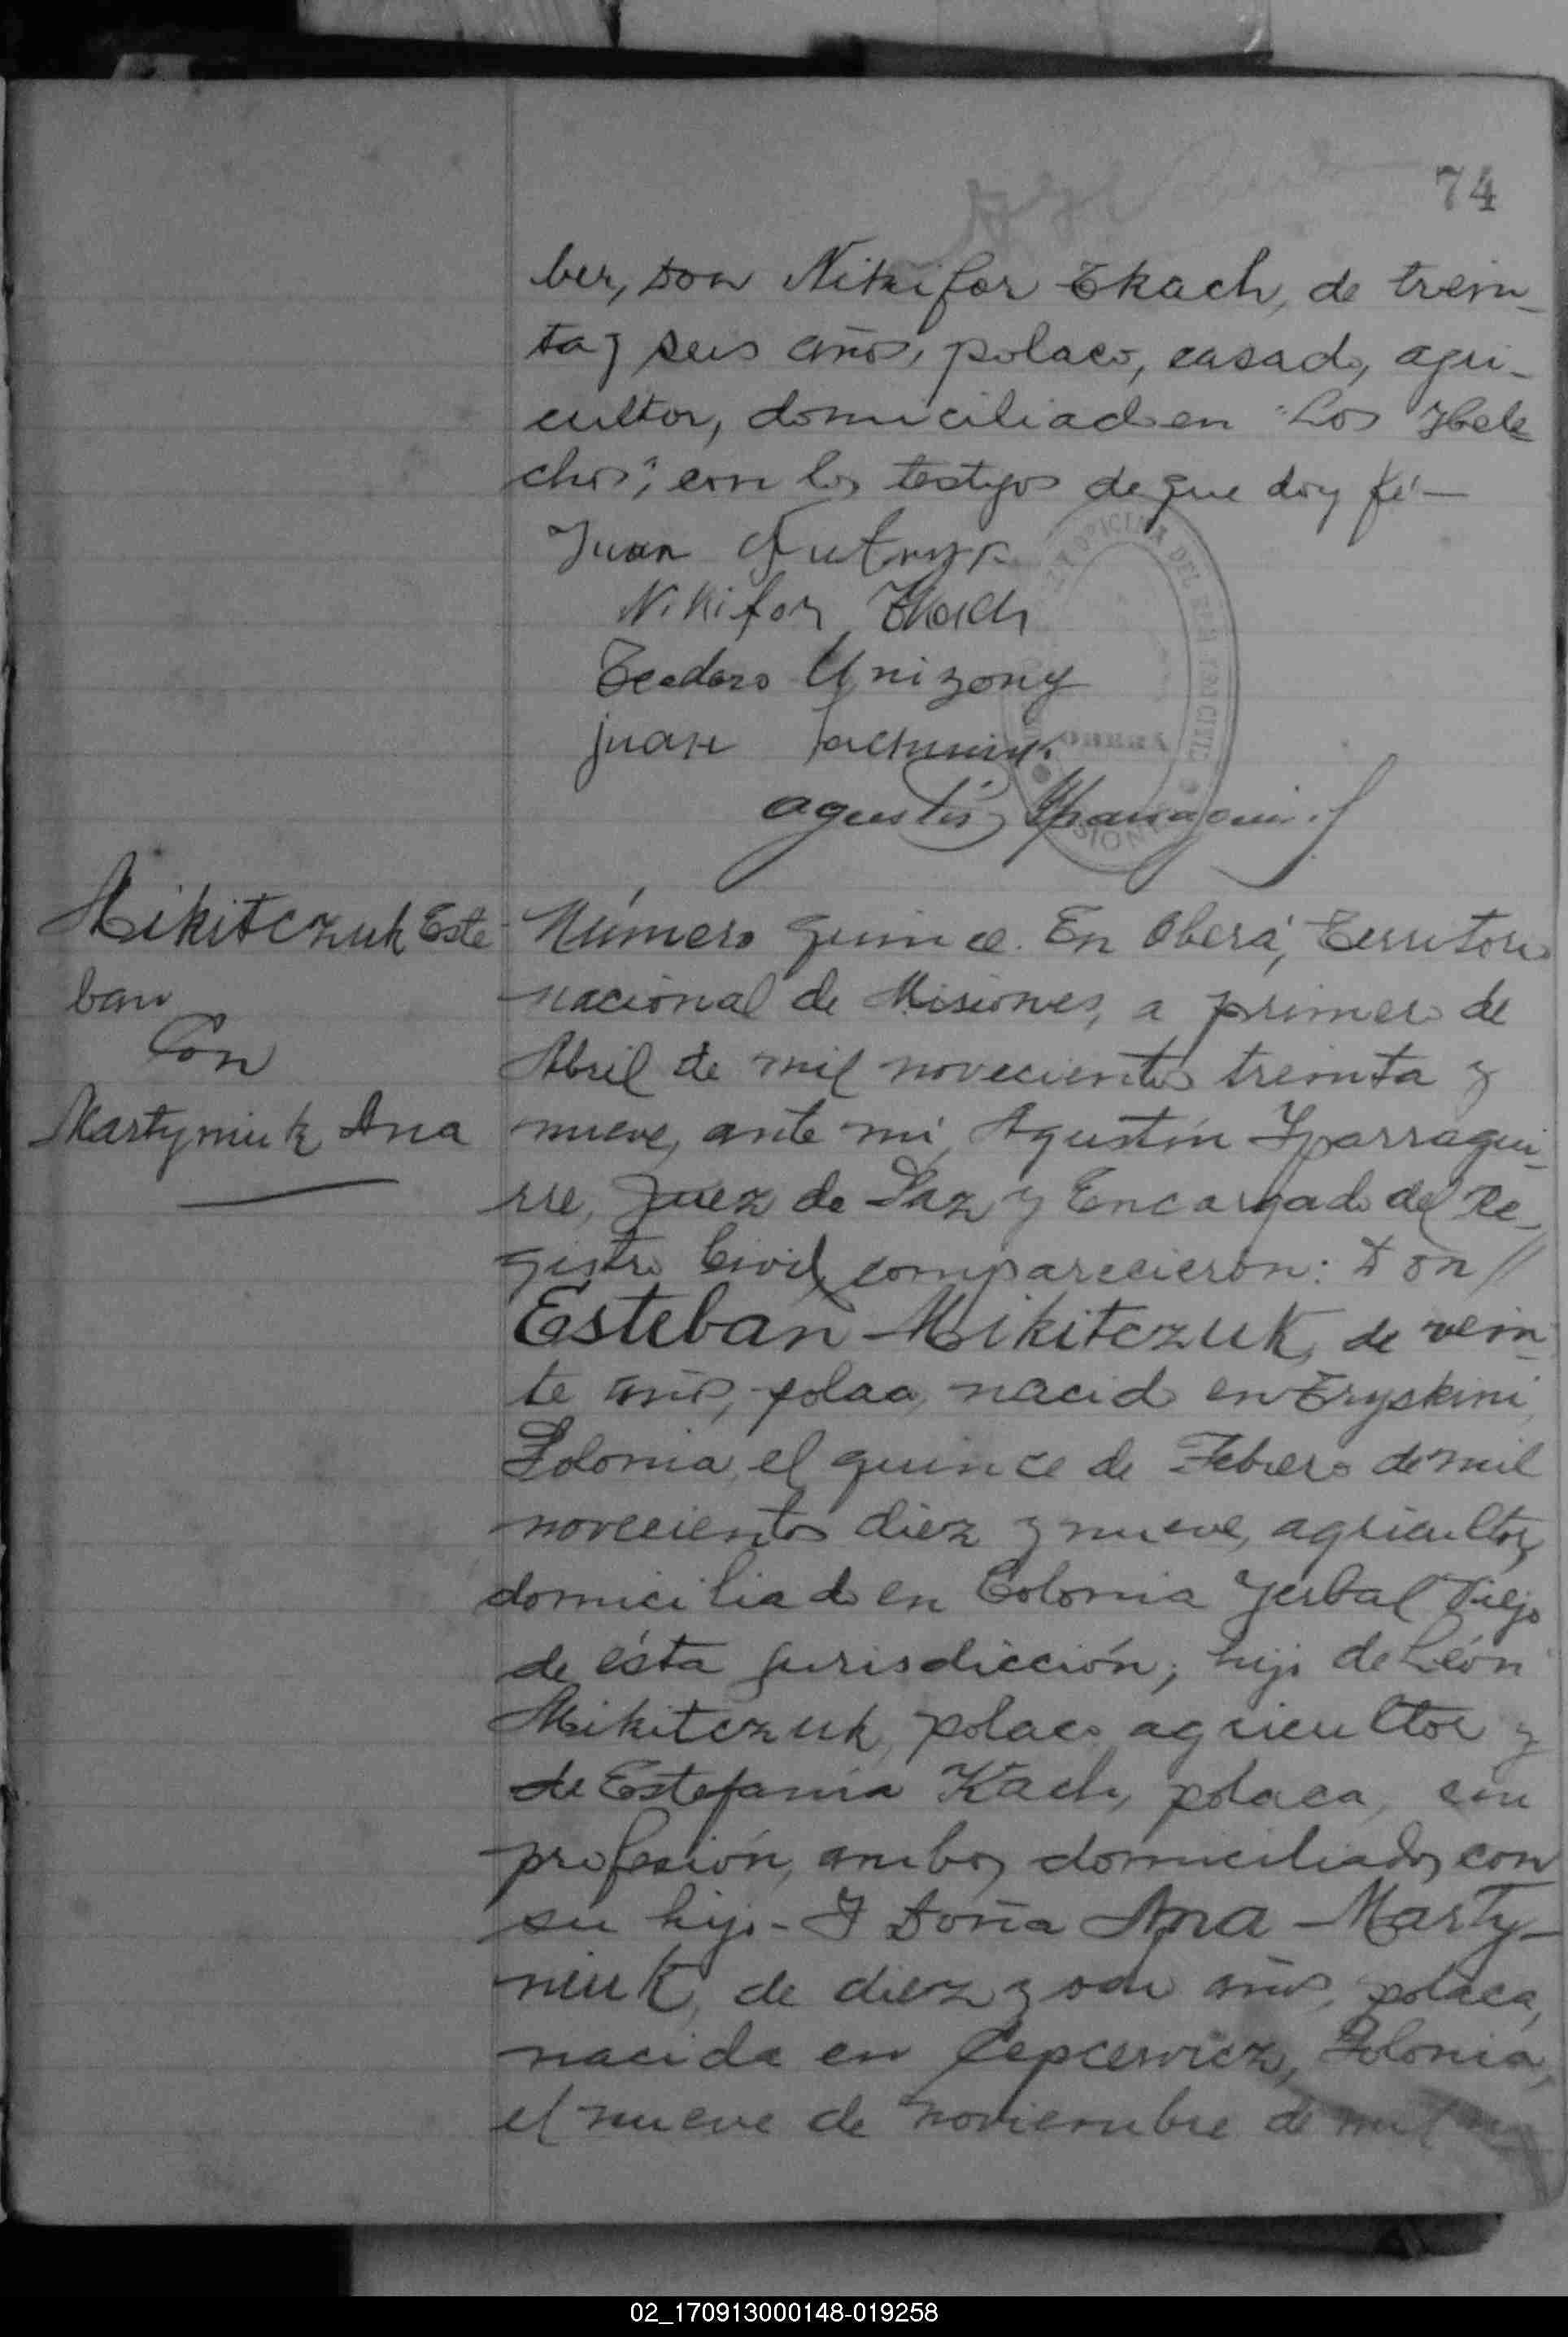 74
ber, Don Nikifor Tkach, de trein-
ta y seis años, polaco, casado, agri-
cultor, domiciliado en "Los Hele
chos", con los testigos de que doy fé—
Juan
Nikifor Tkach
Teodoro Unizony
Juan
Agustín Yparraguirre
OFICINA DEL REGISTRO CIVIL
OBERÁ
MISIONES
Mikitczuk Este
ban
Con
Martyniuk Ana
Número quince. En Oberá, Territorio
nacional de Misiones, a primero de
Abril de mil novecientos treinta y
nueve, ante mi, Agustín Yparragui-
rre, Juez de Paz y Encargado del Re-
gistro Civil, comparecieron: Don //
Esteban Mikitczuk, de vein-
te años, polaco, nacido en Tryskini,
Polonia, el quince de Febrero de mil
novecientos diez y nueve, agricultor,
domiciliado en Colonia Yerbal Viejo
de ésta jurisdicción; hijo de León
Mikitczuk, polaco, agricultor y
de Estefanía Kach, polaca, sin
profesión, ambos domiciliados con
su hijo.- Y Doña Ana Marty-
niuk, de diez y ocho años, polaca,
nacida en Cepcewicz, Polonia,
el nueve de noviembre de mil no
02_170913000148-019258